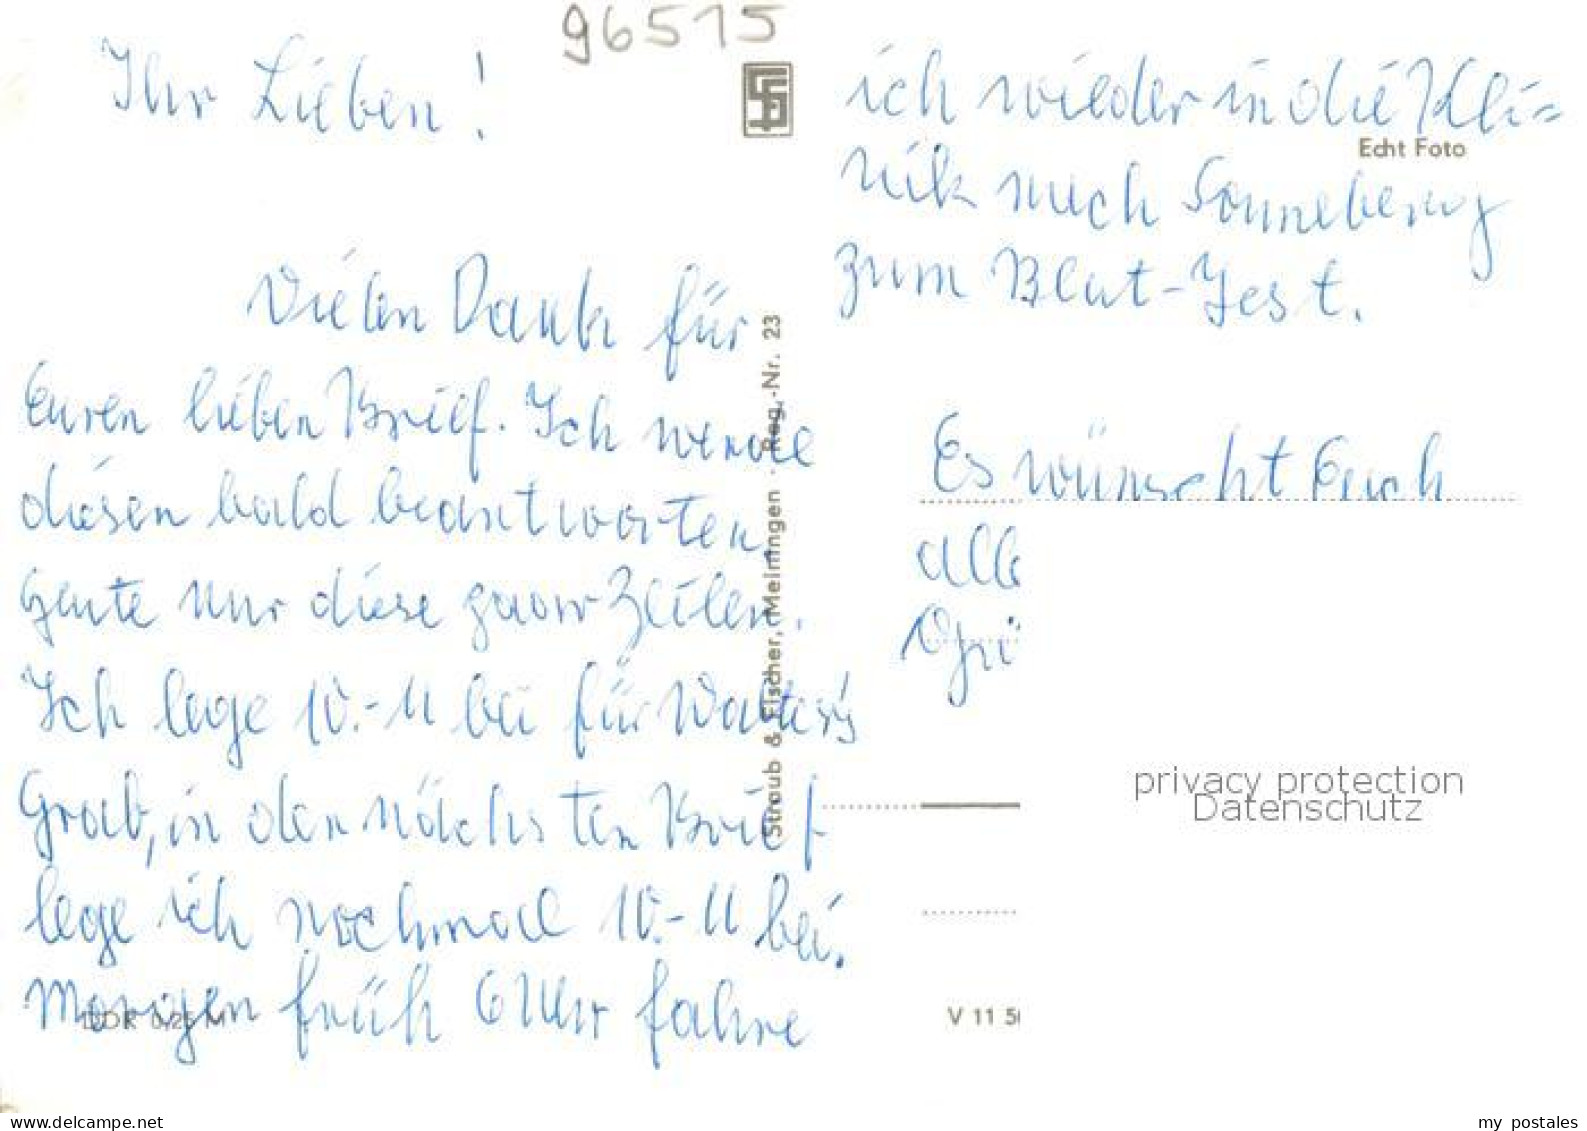 96515
Ihr Lieben!
Vielen Dank für
Euren lieben Brief. Ich werde
diesen bald beantworten,
heute nur diese paar Zeilen.
Ich lege 10.-M bei für Walter's
Grab, in den nächsten Brief
lege ich nochmal 10.-M bei.
Morgen früh 6 Uhr fahre
DDR 0,25 M
Straub & Fischer, Meiningen · Reg.-Nr. 23
ich wieder in die Kli=
Echt Foto
nik nach Sonneberg
zum Blut-Test.
Es wünscht Euch
alle
Grü
privacy protection
Datenschutz
V 11 5
www.delcampe.net
my_postales